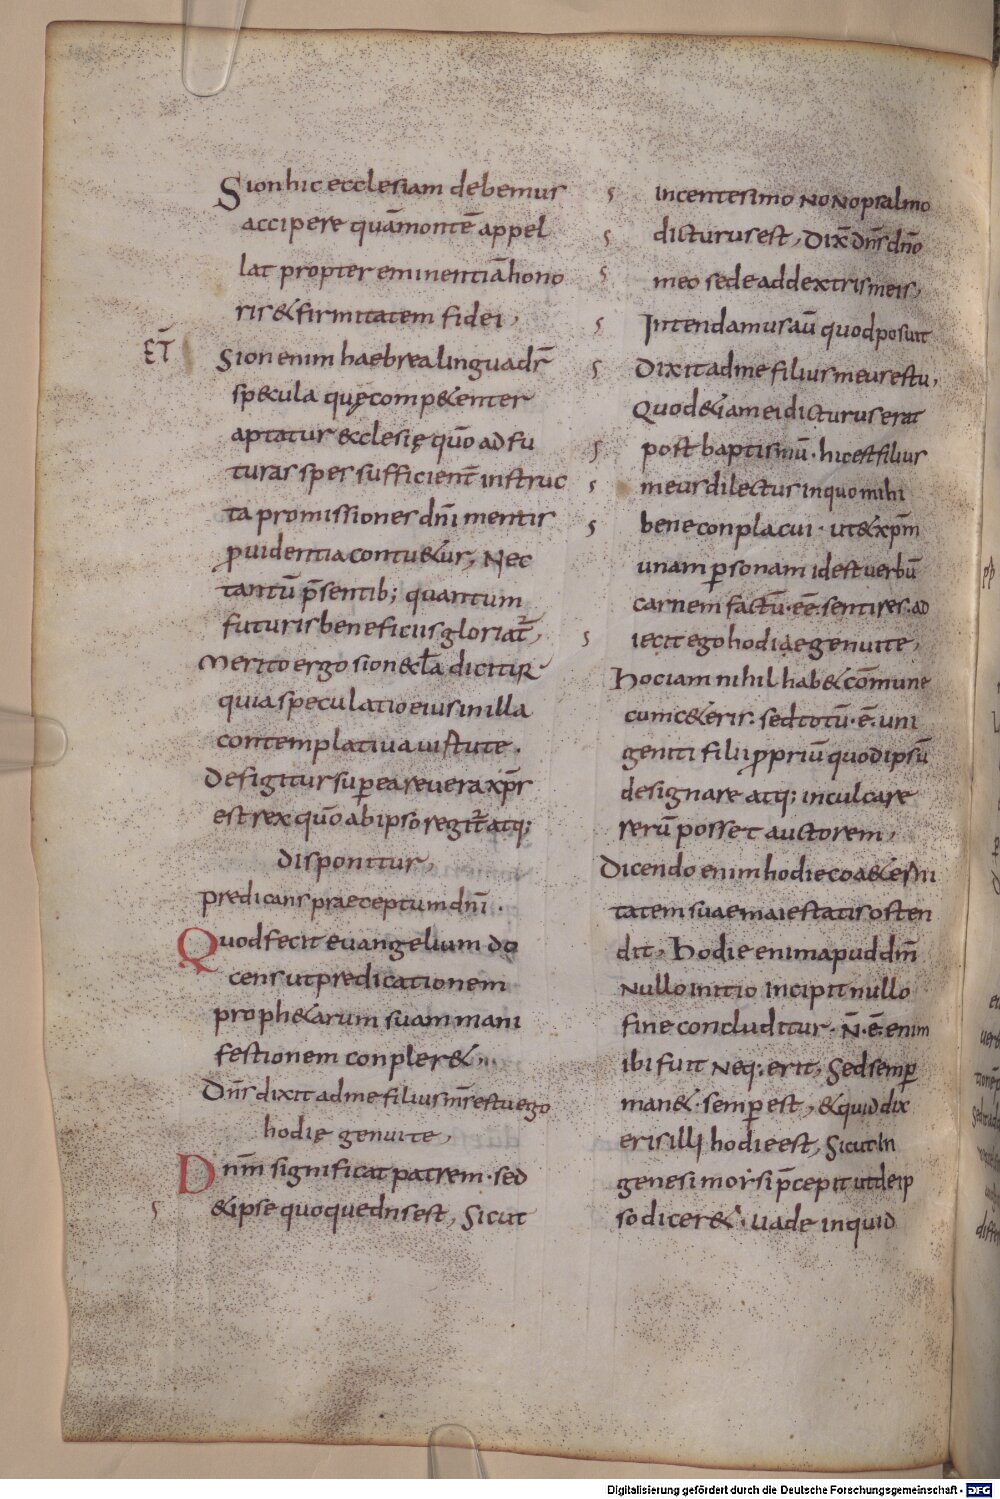 Sion hic ecclesiam debemus
accipere quā montē appel
lat propter eminentiā hono
ris & firmitatem fidei,
ET̄
Sion enim haebrea lingua dr̄
sp&cula quę comp&enter
aptatur &cclesię quō ad fu
turas spes sufficient̄ instruc
ta promissiones dn̄i mentis
ꝓuidentia contu&ur, Nec
tantū p̄sentib; quantum
futuris beneficiis gloriat̄,
Merito ergo sion &cl̄a dicitur
quia speculatio eius in illa
contemplatiua uirtute.
Defigitur sup ea reuera xp̄s
est rex quō ab ipso regit̄ atq;
disponitur,
predicans praeceptum dn̄i.
Quod fecit euangelium do
cens ut predicationem
proph&arum suam mani
festionem conpler&.
Dn̄s dixit ad me filius m̄s es tu ego
hodię genui te,
Dnm̄ significat patrem. sed
& ipse quoque dns est, Sicut
In centesimo NoNo psalmo
dicturus est, Dix̄ dn̄s dn̄o
meo sede ad dextris meis,
Intendamus aū quod posuit
Dixit ad me filius meus es tu,
Quod &iam ei dicturus erat
post baptismū. hic est filius
meus dilectus in quo mihi
bene conplacui. ut & xp̄m
unam p̱sonam id est uerbū
carnem factū. ēē. sentires. ad
iecit ego hodiae genui te,
Hoc iam nihil hab& cōmune
cum c&eris. sed totū. ē. uni
geniti filii ꝓpriū quod ipsū
designare atq; inculcare
rerū posset auctorem,
Dicendo enim hodie coa&erni
tatem suae maiestatis osten
dit, Hodie enim apud dm̄
Nullo initio Incipit nullo
fine concluditur. N̄. ē. enim
ibi fuit Neq; erit, Sed semp
man&. semp est, & quid dix
eris illi hodie est, Sicut In
genesi moysi p̄cepit ut de ip
so dicer&. Uade inquid